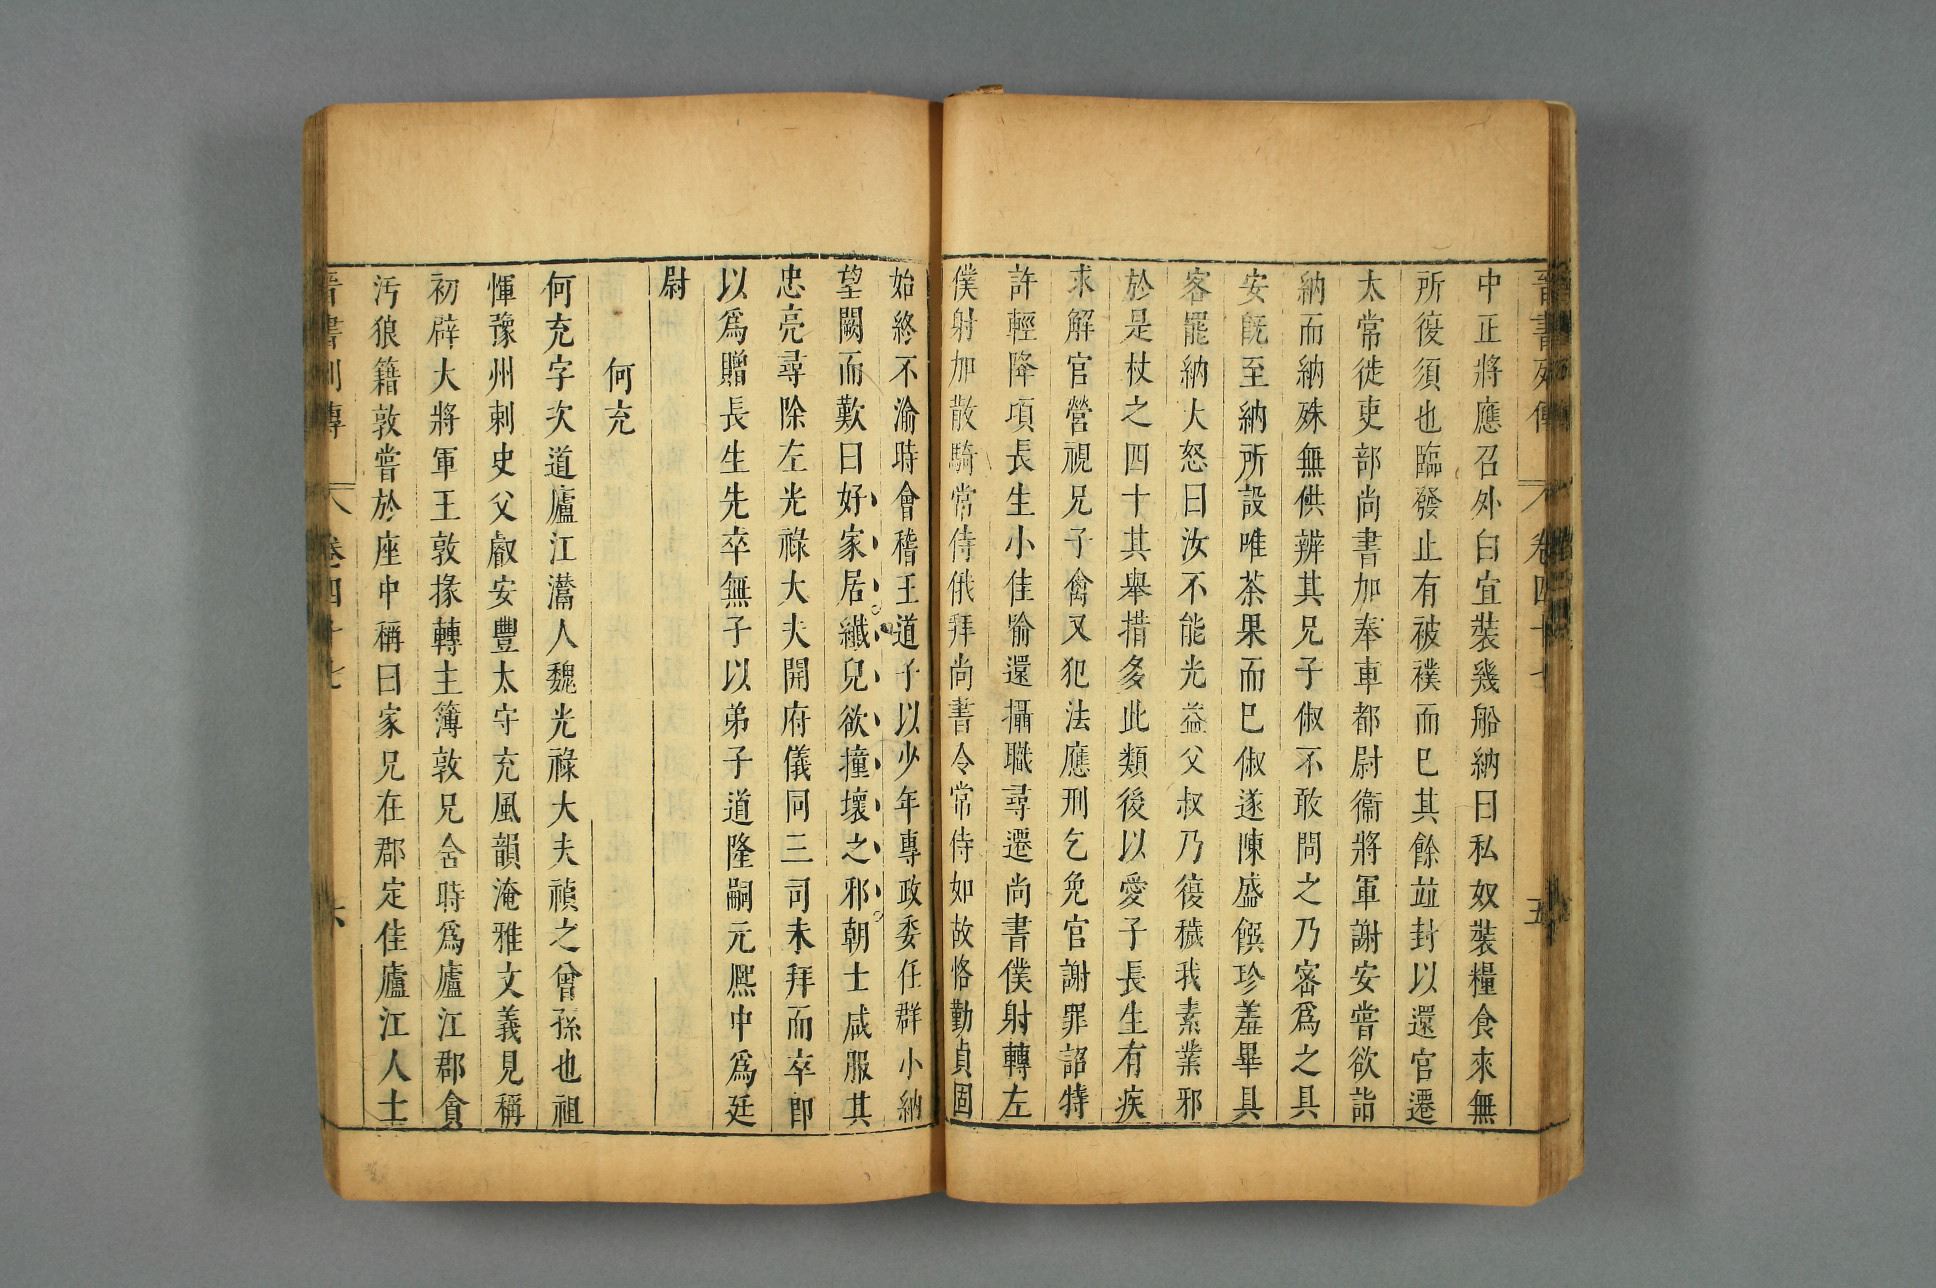 晉書列傳 卷四十七 五
中正將應召外白宜裝幾船納曰私奴裝糧食來無
所復須也臨發止有被襆而已其餘並封以還官遷
太常徙吏部尚書加奉車都尉衞將軍謝安嘗欲詣
納而納殊無供辨其兄子俶不敢問之乃密爲之具
安旣至納所設唯茶果而已俶遂陳盛饌珍羞畢具
客罷納大怒曰汝不能光益父叔乃復穢我素業邪
於是杖之四十其舉措多此類後以愛子長生有疾
求解官營視兄子禽又犯法應刑乞免官謝罪詔特
許輕降頃長生小佳喻還攝職尋遷尚書僕射轉左
僕射加散騎常侍俄拜尚書令常侍如故恪勤貞固
始終不渝時會稽王道子以少年專政委任群小納
望闕而歎曰好家居纖兒欲撞壞之邪朝士咸服其
忠亮尋除左光祿大夫開府儀同三司未拜而卒卽
以爲贈長生先卒無子以弟子道隆嗣元熙中爲廷
尉
何充
何充字次道廬江灊人魏光祿大夫禎之曾孫也祖
惲豫州刺史父叡安豐太守充風韻淹雅文義見稱
初辟大將軍王敦掾轉主簿敦兄含時爲廬江郡貪
汚狼籍敦嘗於座中稱曰家兄在郡定佳廬江人士
晉書列傳 卷四十七 六